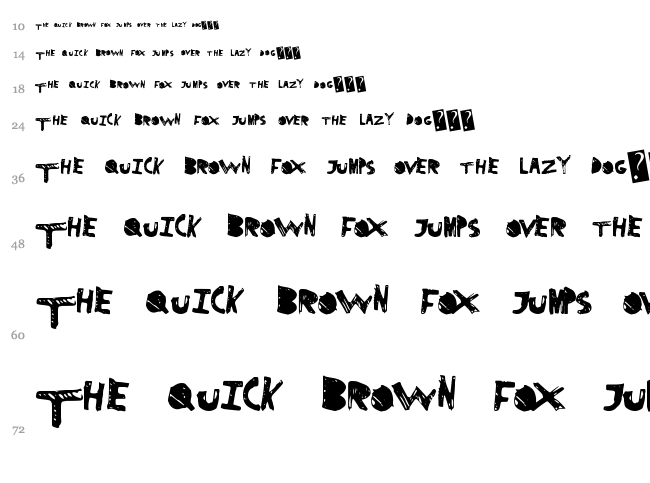 10 THE QUICK BROWN FOX JUMPS OVER THE LAZY DOG???
14 THE QUICK BROWN FOX JUMPS OVER THE LAZY DOG???
18 THE QUICK BROWN FOX JUMPS OVER THE LAZY DOG???
24 THE QUICK BROWN FOX JUMPS OVER THE LAZY DOG???
36 THE QUICK BROWN FOX JUMPS OVER THE LAZY DOG?
48 THE QUICK BROWN FOX JUMPS OVER THE
60 THE QUICK BROWN FOX JUMPS OV
72 THE QUICK BROWN FOX JU